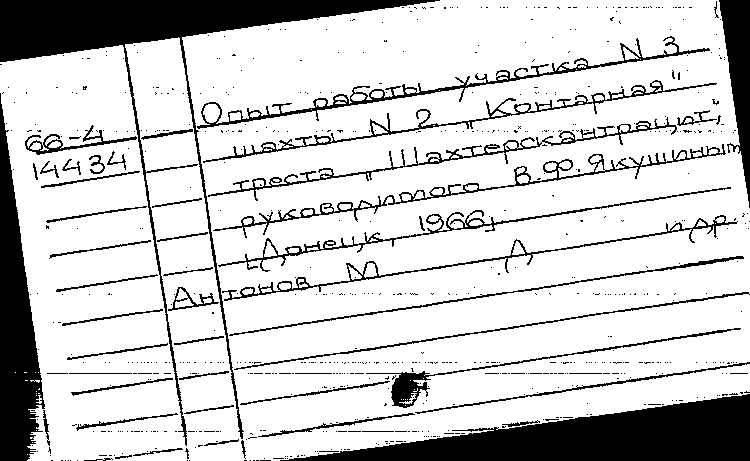 Опыт работы участка N 3
66-4
шахты N 2 „Контарная"
14434
треста „Шахтерскантрацит",
руководимого В.Ф. Якушиным
[Донецк, 1966]
Антонов, М Д и др.